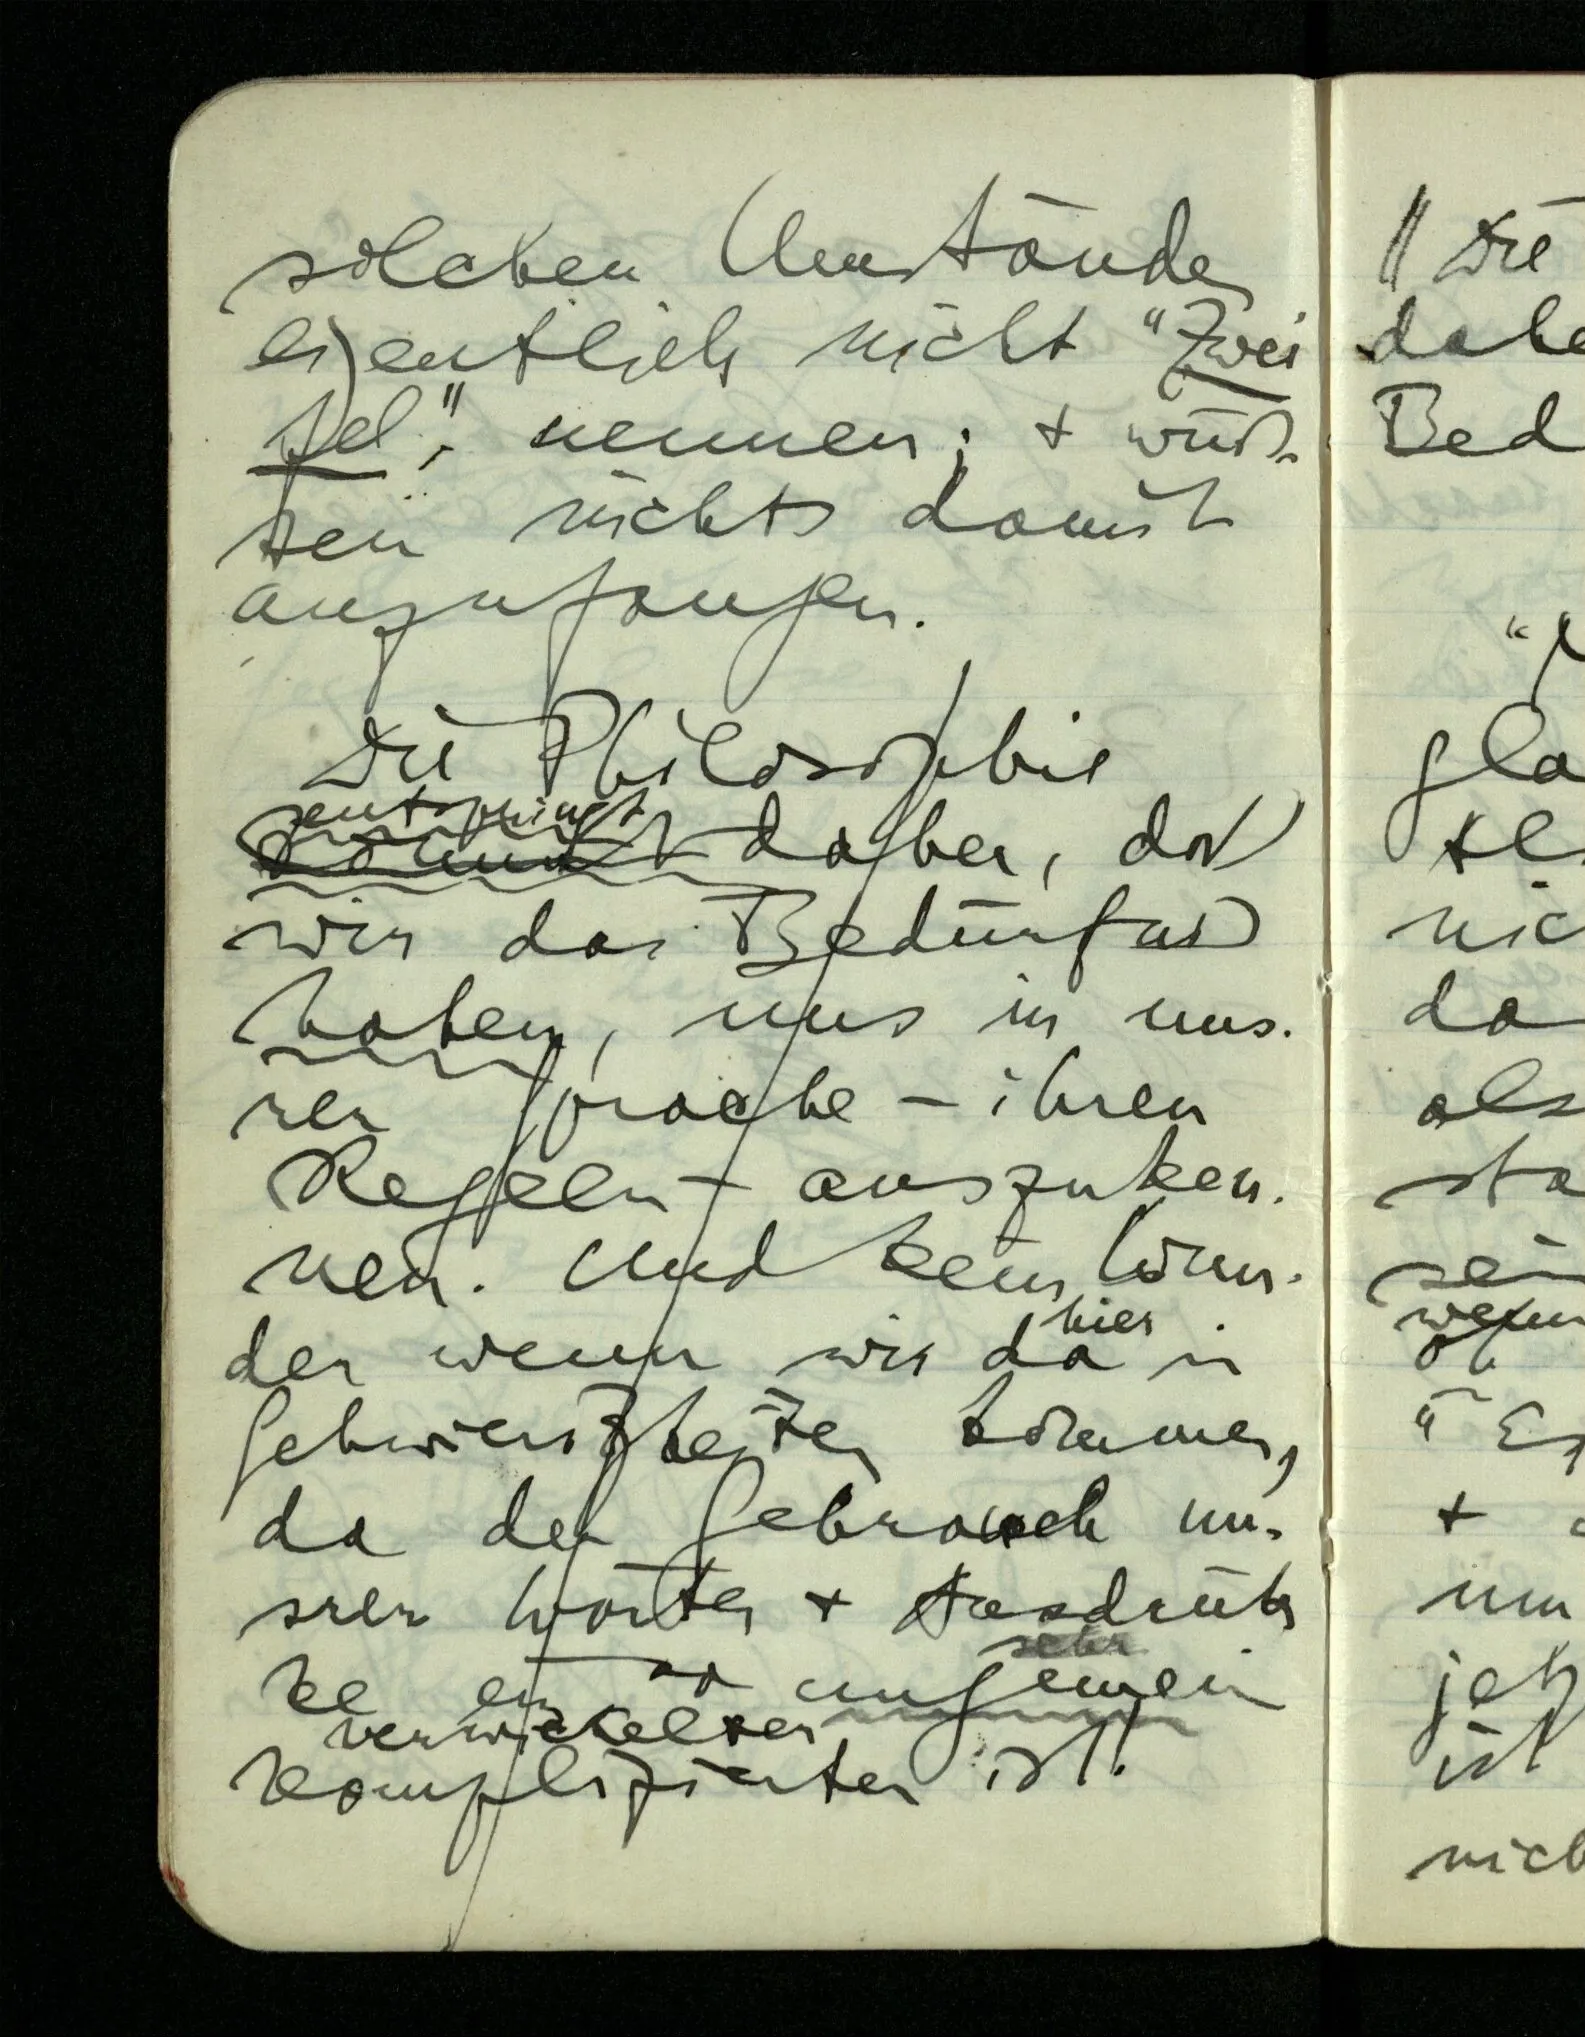 solchen Umstände
eigentlich nicht "Zwei
fel", nennen; + wüß-
ten nichts damit
anzufangen.
Die Philosophie
entspringt
kommt daher, daß
wir das Bedürfnis
haben, uns in uns-
rer Sprache – ihren
Regeln – auszuken-
nen. Und kein Wun-
hier
der wenn wir da in
Schwierigkeiten kommen,
da der Gebrauch un-
srer Wörter + Ausdrük
sehr
ke ein so ungemein
verwickelter
komplizierter ist.
// Die
dabe
Bed
gla
nic
da
als
sta
sei
wenn
"Es
+
um
jetz
ist
nich